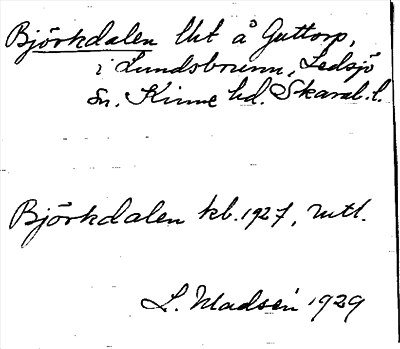 Björkdalen lht å Guttorp,
i Lundsbrunn, Ledsjö
sn. Kinne hd. Skarab. l.
Björkdalen kb. 1927, mtl.
L. Madsén 1929